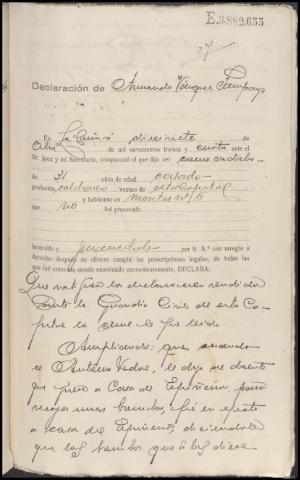 E.3.882.655
27
Declaración de Armando Vázquez
En La Coruña diecisiete de
Abril de mil novecientos treinta y cuatro ante el
Sr. Juez y mi Secretario, compareció el que dijo ser como expresado
de 31 años de edad, casado
profesión calderero vecino de esta Capital
y habitante en Montes nº 16
que no fué procesado
Instruido y juramentado por S. S.ª con arreglo a
derecho después de ofrecer cumplir las prescripciones legales, de todas las
que fué enterado siendo examinado convenientemente, DECLARA:
Que ratifica la declaración rendida
ante la Guardia Civil de esta Ca-
pital la cual le fué leída
Ampliando: que cuando
el Antonio Vidal, le dijo
que fuese a Casa de para
recoger unas bombas, fué en efecto
a casa de diciéndole
que las bombas que